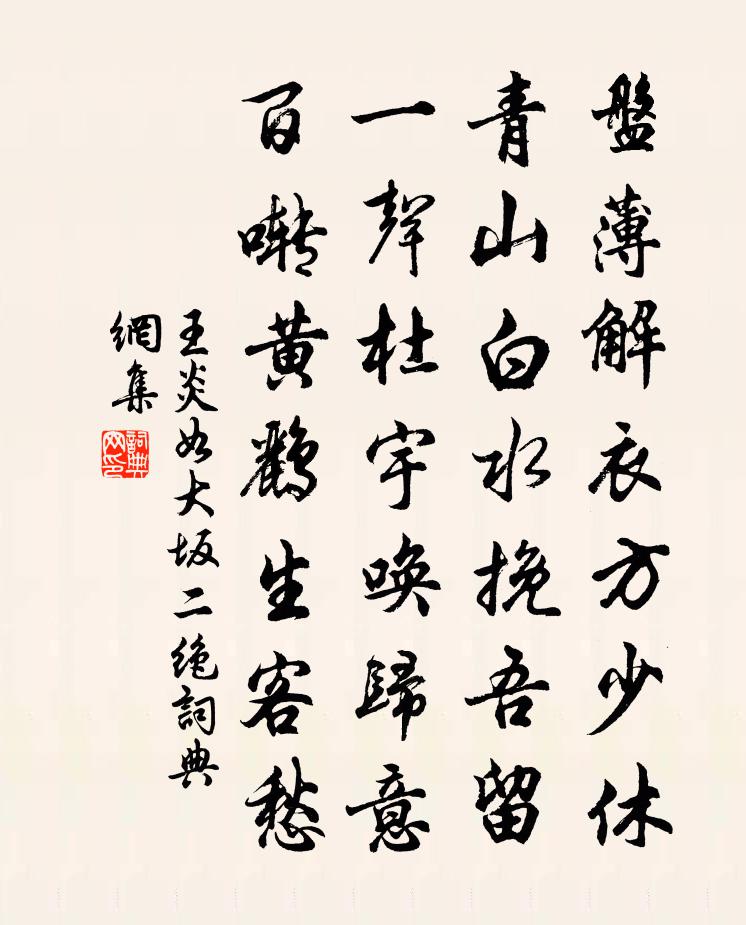 盤薄解衣方少休
青山白水挽吾留
一聲杜宇喚歸意
百囀黃鸝生客愁
王炎如大坂二絶詞典
網集
詞典
网印